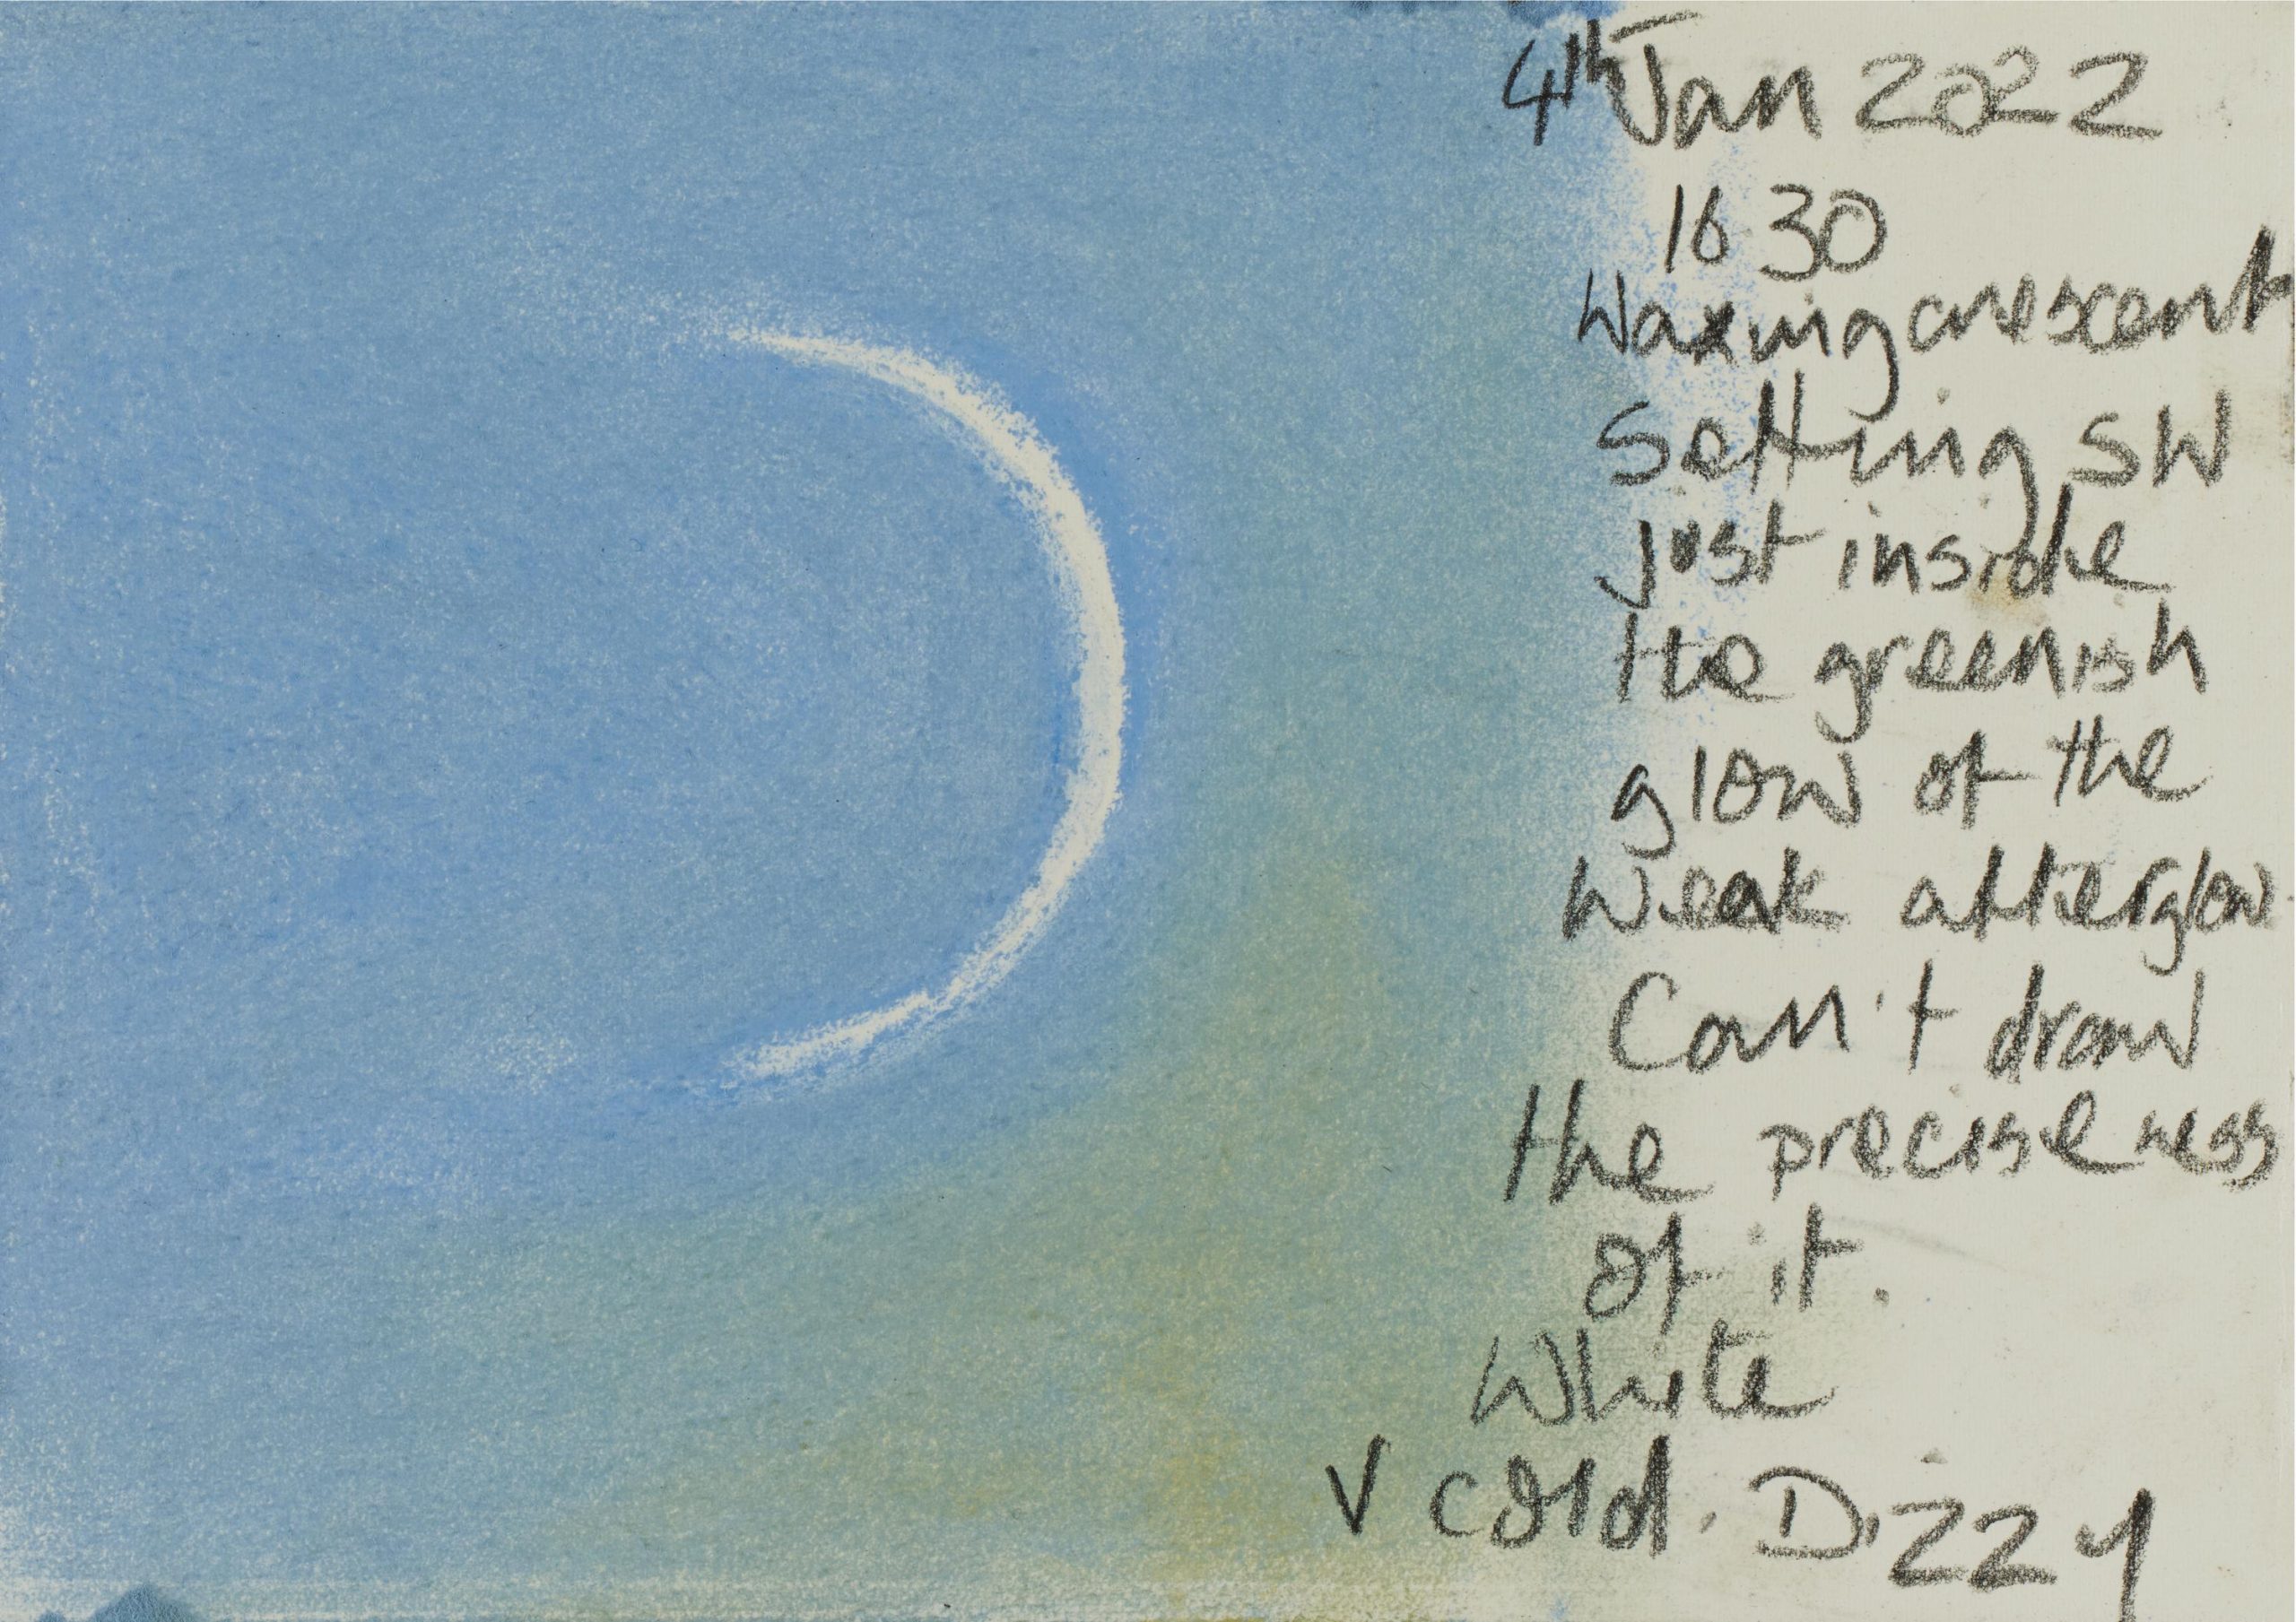 4th Jan 2022
16 30
Waxing crescent
Setting SW
just inside
the greenish
glow of the
weak afterglow.
Can't draw
the preciseness
of it.
White
V cold. Dizzy